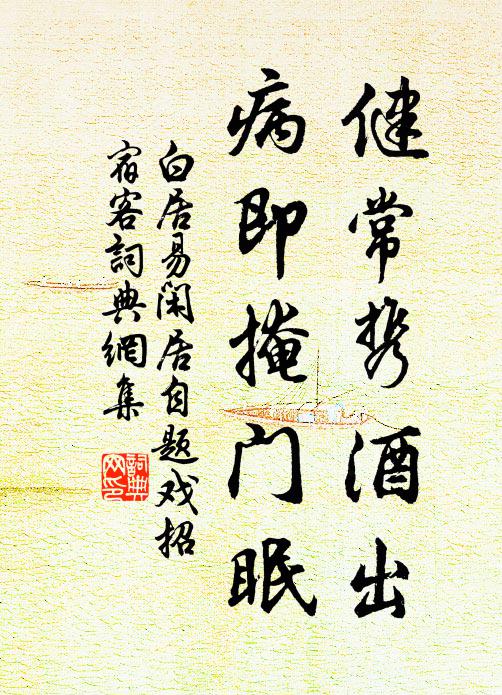 健常携酒出
病即掩门眠
白居易闲居自题戏招
宿客詞典網集
詞典
网印